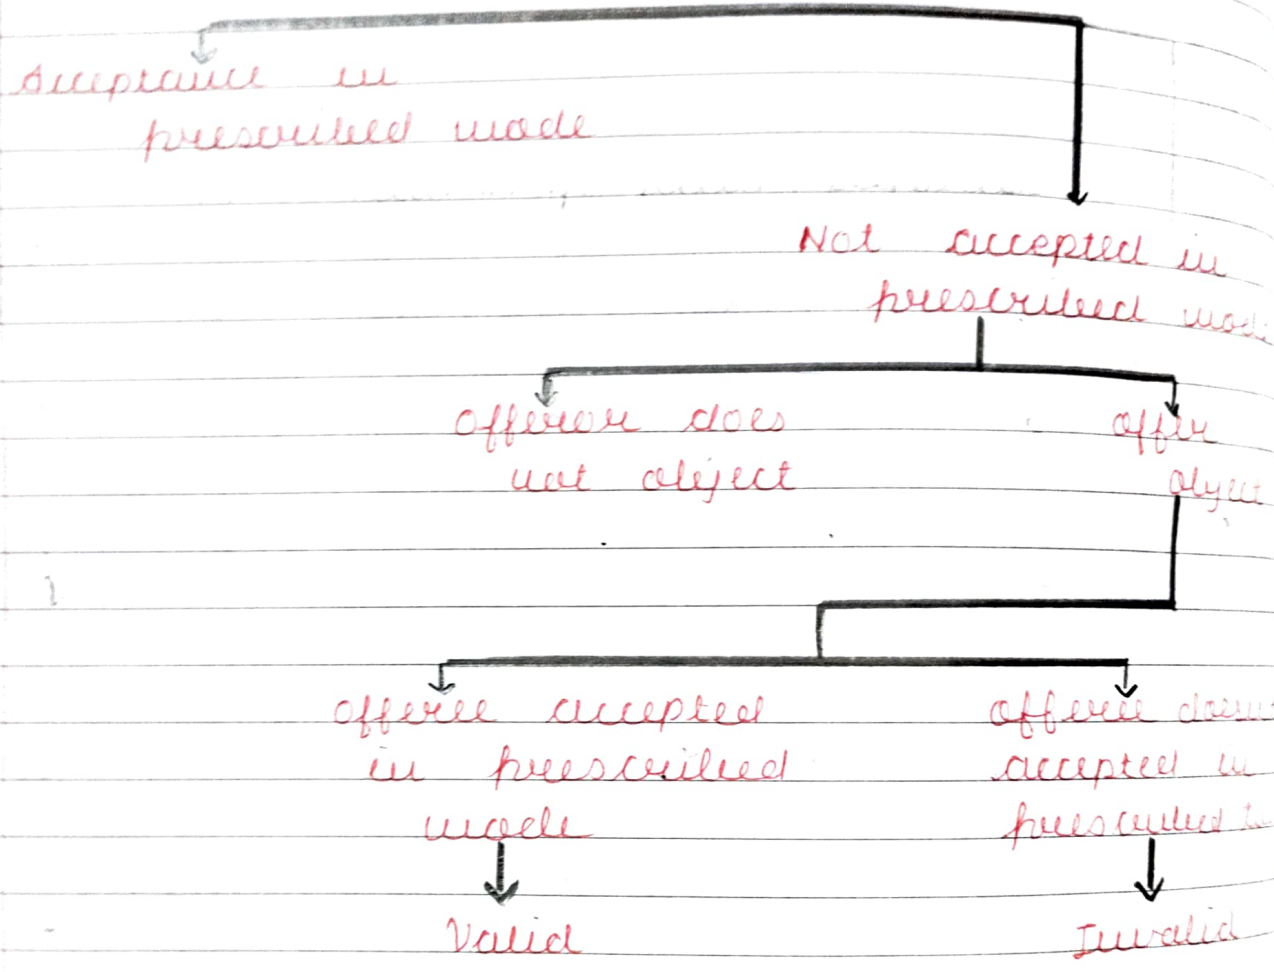 Acceptance in
prescribed mode
Not accepted in
prescribed mode
Offeror does
not object
offer
object
offeree accepted
in prescribed
mode
offeree
accepted in
prescribed
Valid
Invalid